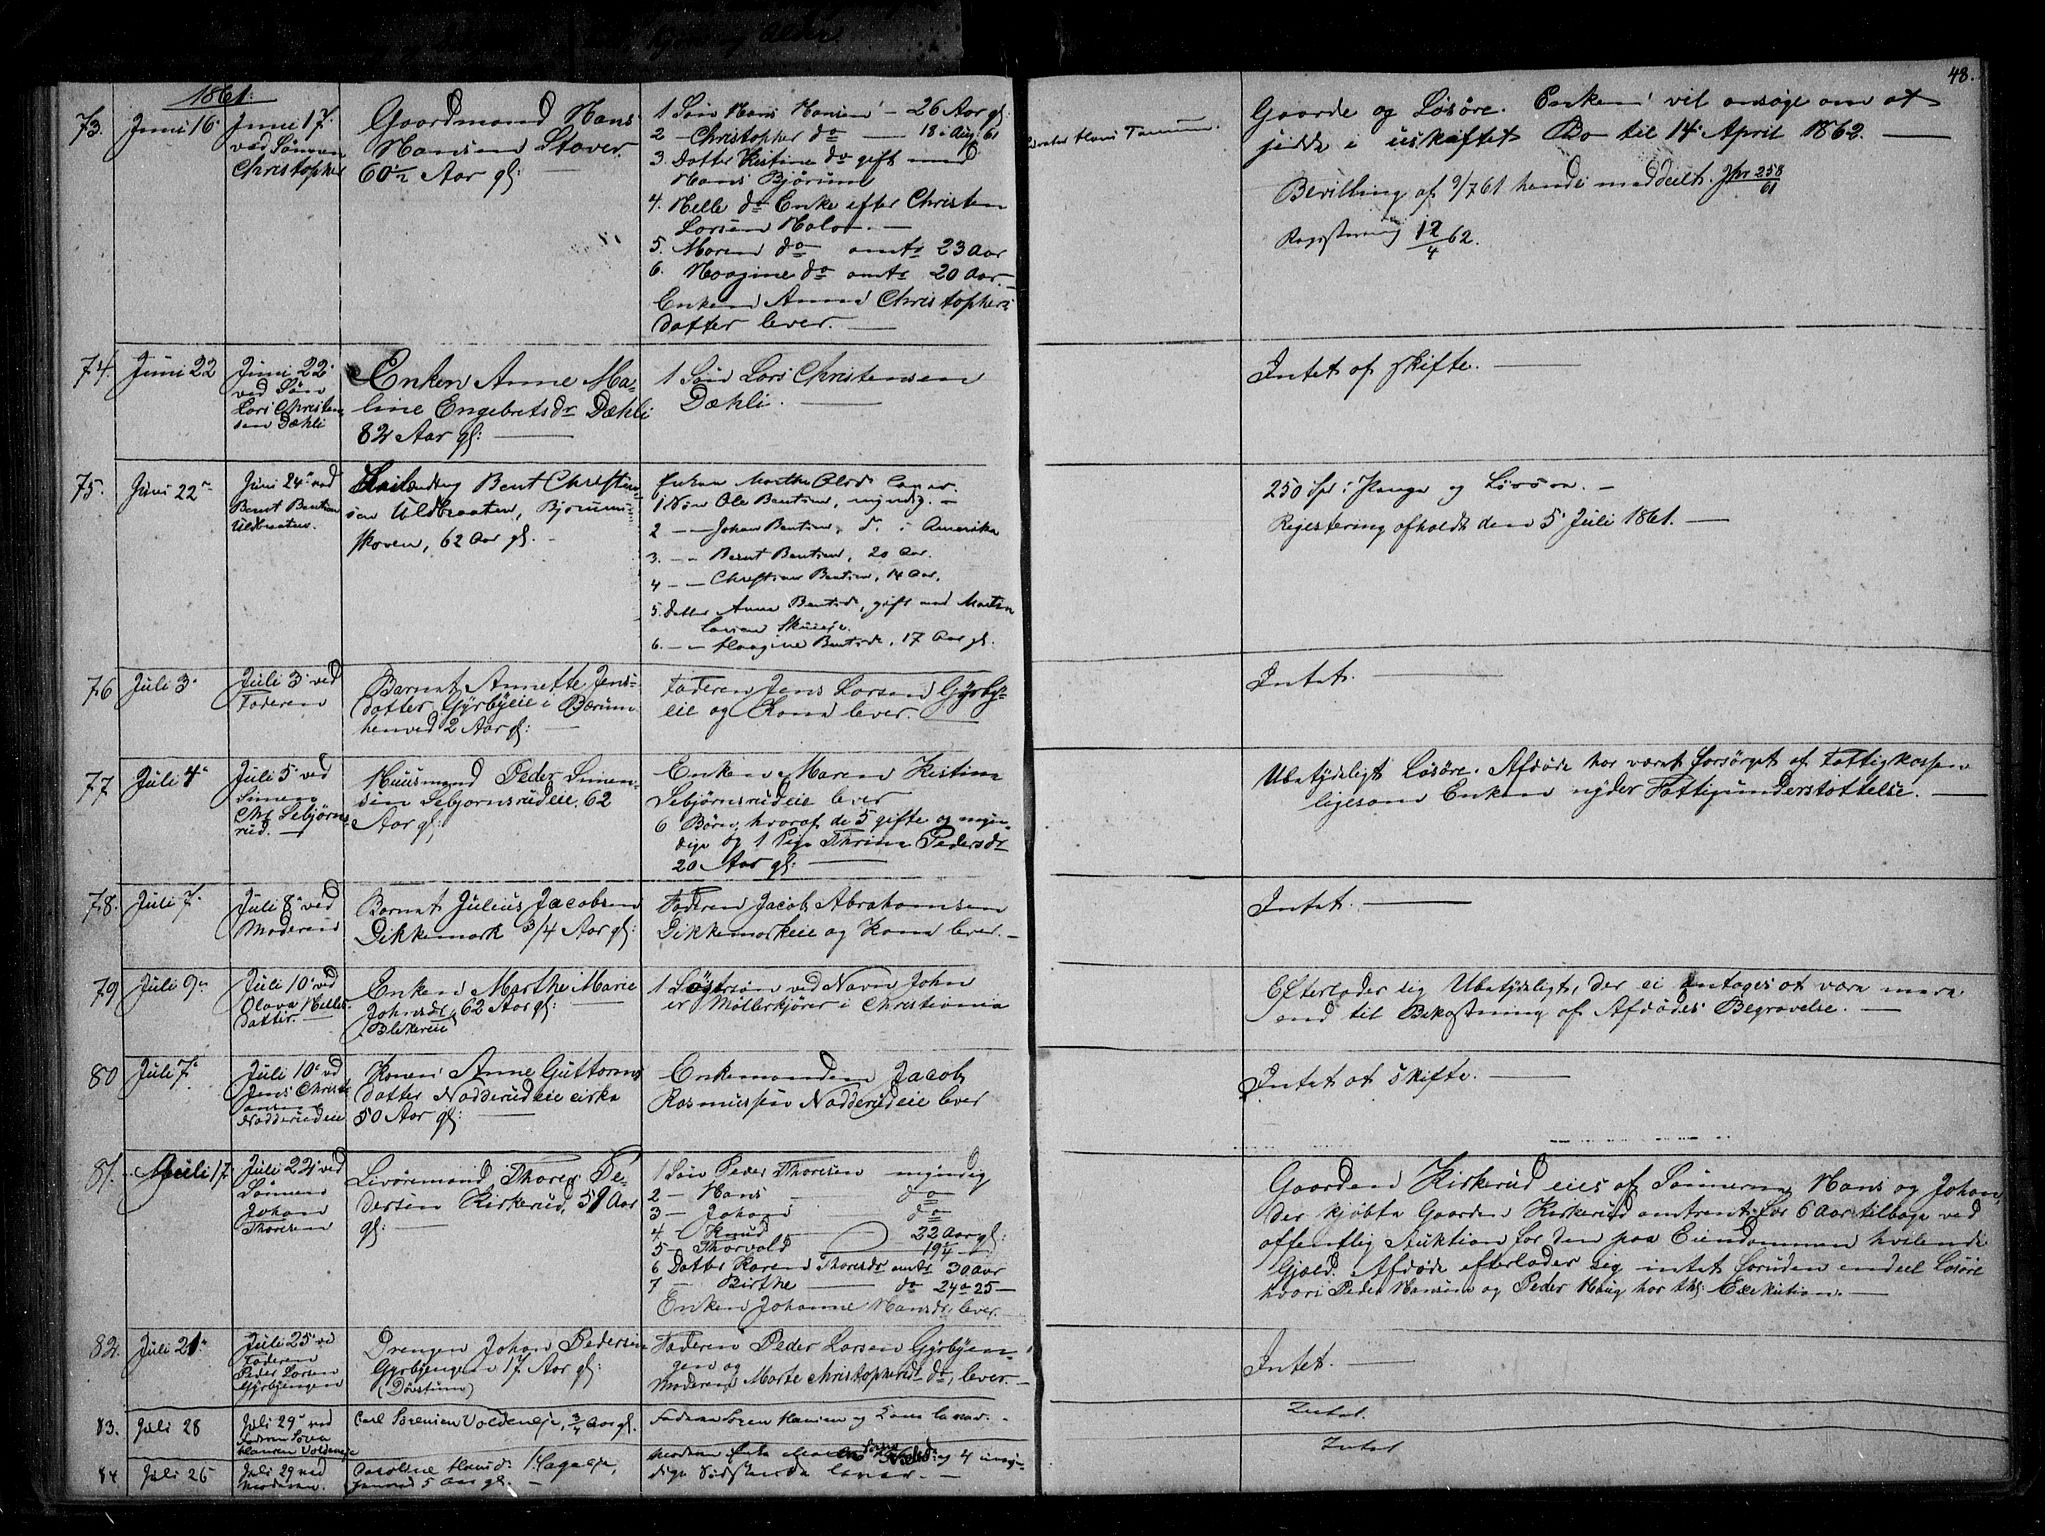 48.
1861.
73.
Juni 16
Juni 17
ved Sønnen
Christopher
Gaardmand Hans
Hansen Staver
60½ Aar gl:
1 Søn Hans Hansen – 26 Aar gl:
2 – Christopher do — 18 Aar
3. Datter Kistine do gift med
Hans Bjørum
4. Helle do Enke efter Christen
Larsen
5. Maren do omtr 23 Aar
6. Haagine do omtr 20 Aar. –
Enken Anne Christophers
datter lever. —
Gaarde og Løsøre. Enken vil ansøge om at
sidde i uskiftet Bo til 14 April 1862. —
Bevilling af 9/7 61 hende meddeelt. Jnr 258/61
Registrering 12/4 62.
74.
Juni 22
Juni 22
ved Søn
Lars Christen
sen Dæhli
Enken Anne Ma-
line Engebretsdr Dæhli
82 Aar gl: —
1 Søn Lars Christensen
Dæhli. —
Intet at skifte. —
75.
Juni 22
Juni 24 ved
Bernt Bentsen
Uldbraaten.
Bent Christian-
sen Uldbraaten, Bjørum-
skoven, 62 Aar gl. –
Enken Marthe Olsdr lever.
1 Søn Ole Bentsen, myndig. –
2 – – Johan Bentsen, do i Amerika
3. – – Bernt Bentsen, 20 Aar.
4 – – Christian Bentsen, 14 Aar.
5. Datter Anne Bentsdr, gift med Martin
Larsen Skuieje.
6. – – Haagine Bentsdr, 17 Aar gl.
250 Spd i Penge og Løsøre. –
Registering afholdt den 5 Juli 1861. —
76
Juli 3
Juli 3 ved
Faderen
Barnet Annette Jens-
datter Gyrbyeie i Bærum
henved 2 Aar gl: —
Faderen Jens Larsen Gyrby-
eie og Kone lever.
Intet. —
77
Juli 4
Juli 5 ved
Simen
Chr Sebjørns-
rud. —
Huusmand Peder Simen-
sen Sebjørnsrudeie, 62
Aar gl:
Enken Maren Kistine
Sebjørnsrudeie lever
6 Børn, hvoraf de 5 gifte og myn-
dige og 1 Pige Thrine Pedersdr
20 Aar gl: —
Ubetydeligt Løsøre. Afdøde har været forsørget af Fattigkassen
ligesom Enken nyder Fattigunderstøttelse. —
78.
Juli 7
Juli 8 ved
Moderen
Barnet Julius Jacobsen
Dikkemark 3/4 Aar gl:
Faderen Jacob Abrahamsen
Dikkemarkeie og Kone lever. –
Intet. —
79
Juli 9
Juli 10 ved
Olava Nilles-
datter. —
Enken Marthe Marie
Johnsdr, 62 Aar gl:
Blekereie
1 Søstersøn ved Navn John
er Møllerkjører i Christiania
Efterlader sig Ubetydeligt, der ei antages at være mere
end til Bekostning af Afdødes Begravelse. —
80
Juli 7
Juli 10 ved
Jens Christi
ansen
Nadderudeie
Konen Anne Guttorms
datter Nadderudeie cirka
50 Aar gl: —
Enkemanden Jacob
Rasmussen Nadderudeie lever
Intet at skifte. —
81.
Juli 17
Juli 22 ved
Sønnen
Johan
Thoresen
Livøremand Thore Pe-
dersen Kirkerud, 59 Aar
gl: —
1 Søn Peder Thoresen myndig
2 – Hans – do
3 – Johan do
4 – Knud — 22 Aar gl:
5 – Thorvald — 19¼ —
6 Datter Karen Thoresdr omtr 30 Aar
7 – Birthe — do 24 a 25 –
Enken Johanne Hansdr, lever. –
Gaarden Kirkerud eies af Sønnerne Hans og Johan,
der kjøbte Gaarden Kirkerud omtrent for 6 Aar tilbage ved
offentlig Auktion for den paa Eiendommen hvilende
Gjæld. Afdøde efterlader sig intet foruden endeel Løsøre
hvori Peder Hansen og Peder Haug har Exekution. —
82.
Juli 21
Juli 25 ved
Faderen
Peder Larsen
Gyrbyengen
Drengen Johan Pedersen
Gyrbyengen 17 Aar gl:
(Døvstum)
Faderen Peder Larsen Gyrbyen-
gen og
Moderen Marte Christophersdr do, lever. –
Intet. —
83.
Juli 28
Juli 29 ved
Faderen Søren
Hansen Voldeneje
Carl Sørensen Voldeneje, 3/4 Aar gl.
Faderen Søren Hansen og Kone lever. –
Intet.
84
Juli 26
Juli 29 ved
Moderen.
Caroline Hansdr
5 Aar gl. –
Moderen Enke og 4 umyn-
dige Sødskende lever. –
Intet